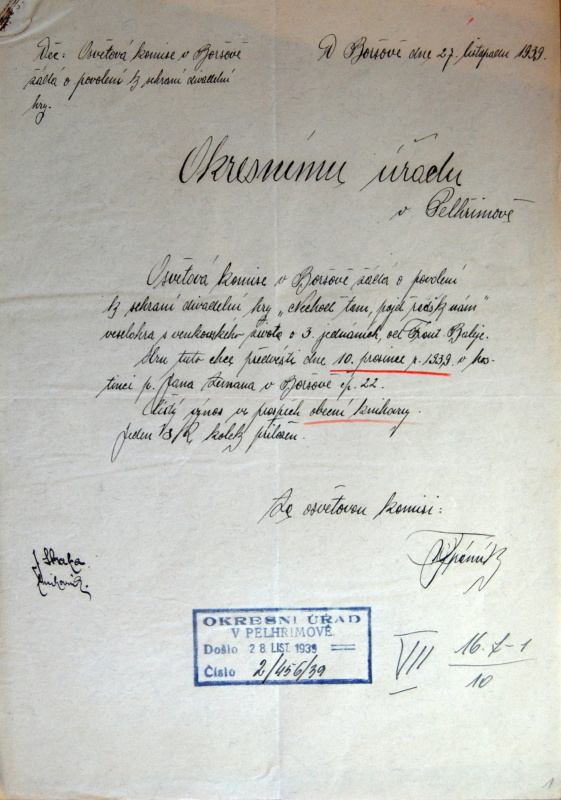 Věc: Osvětová komise v Boršově
žádá o povolení k sehraní divadelní
hry.
V Boršově dne 27. listopadu 1939.
Okresnímu úřadu
v Pelhřimově
Osvětová komise v Boršově žádá o povolení
k sehraní divadelní hry „Nechoď tam, pojď radši k nám"
veselohra s venkovského života o 3. jednáních, od Frant.
Hru tuto chce předvésti dne 10. prosince r. 1939. v hos-
tinci p. Jana v Boršově čp. 22.
Čistý výnos ve prospěch obecní knihovny.
Jeden kolek přiložen.
Za osvětovou komisi:
OKRESNÍ ÚŘAD
V PELHŘIMOVĚ.
Došlo 28 LIST. 1939
Číslo 2/456/39
VII 16-7-1
10
1